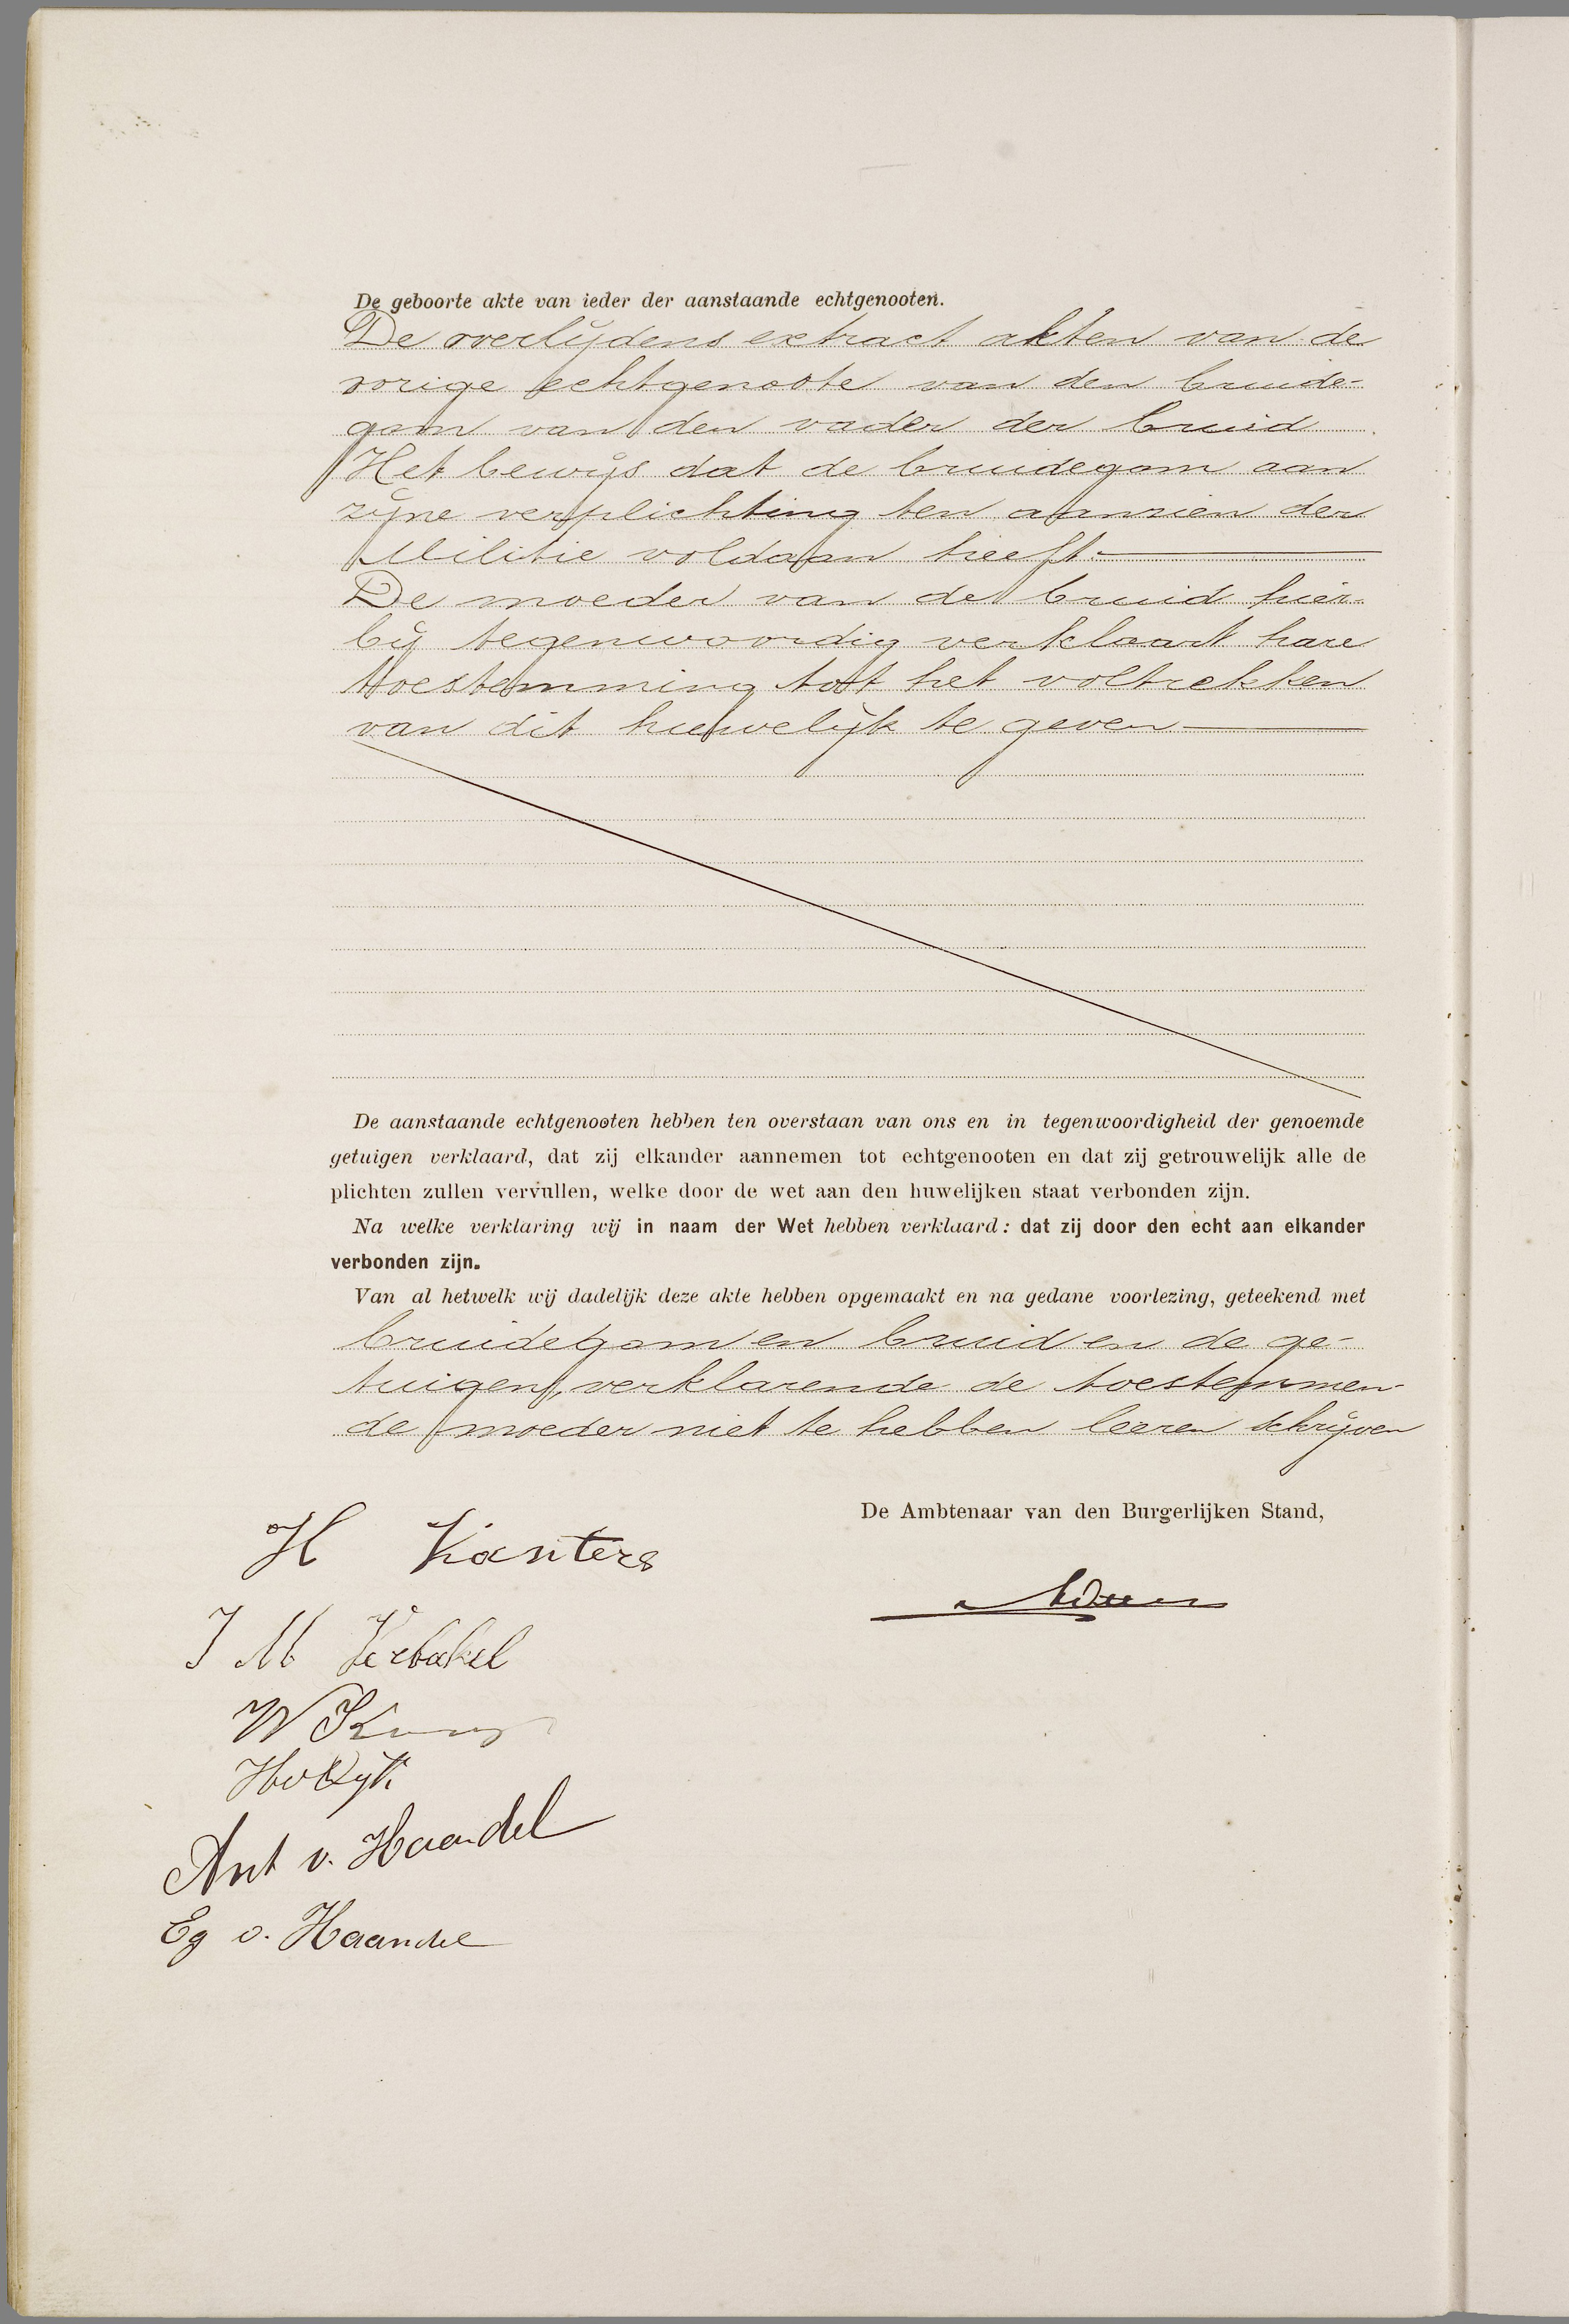 De geboorte akte van ieder der aanstaande echtgenooten.
De overlijdens extract akten van de
vorige echtgenoote van den bruide-
gom van den vader der bruid
Het bewijs dat de bruidegom aan
zijne verplichting ten aanzien der
Militie voldaan heeft.
De moeder van de bruid hier-
bij tegenwoordig verklaart hare
toestemming tot het voltrekken
van dit huwelijk te geven
De aanstaande echtgenooten hebben ten overstaan van ons en in tegenwoordigheid der genoemde
getuigen verklaard, dat zij elkander aannemen tot echtgenooten en dat zij getrouwelijk alle de
plichten zullen vervullen, welke door de wet aan den huwelijken staat verbonden zijn.
Na welke verklaring wij in naam der Wet hebben verklaard: dat zij door den echt aan elkander
verbonden zijn.
Van al hetwelk wij dadelijk deze akte hebben opgemaakt en na gedane voorlezing, geteekend met
bruidegom en bruid en de ge-
tuigen, verklarende de toestemmen-
de moeder niet te hebben leeren schrijven
De Ambtenaar van den Burgerlijken Stand,
H Kanters
J M Verbakel
W
Ant v. Haandel
Eg v. Haandel